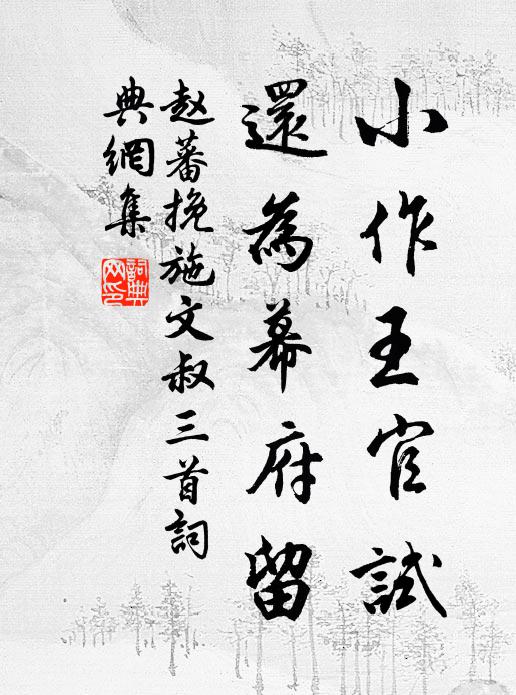 小作王官試
還為幕府留
趙蕃挽施文叔三首詞
典網集
詞典
网印